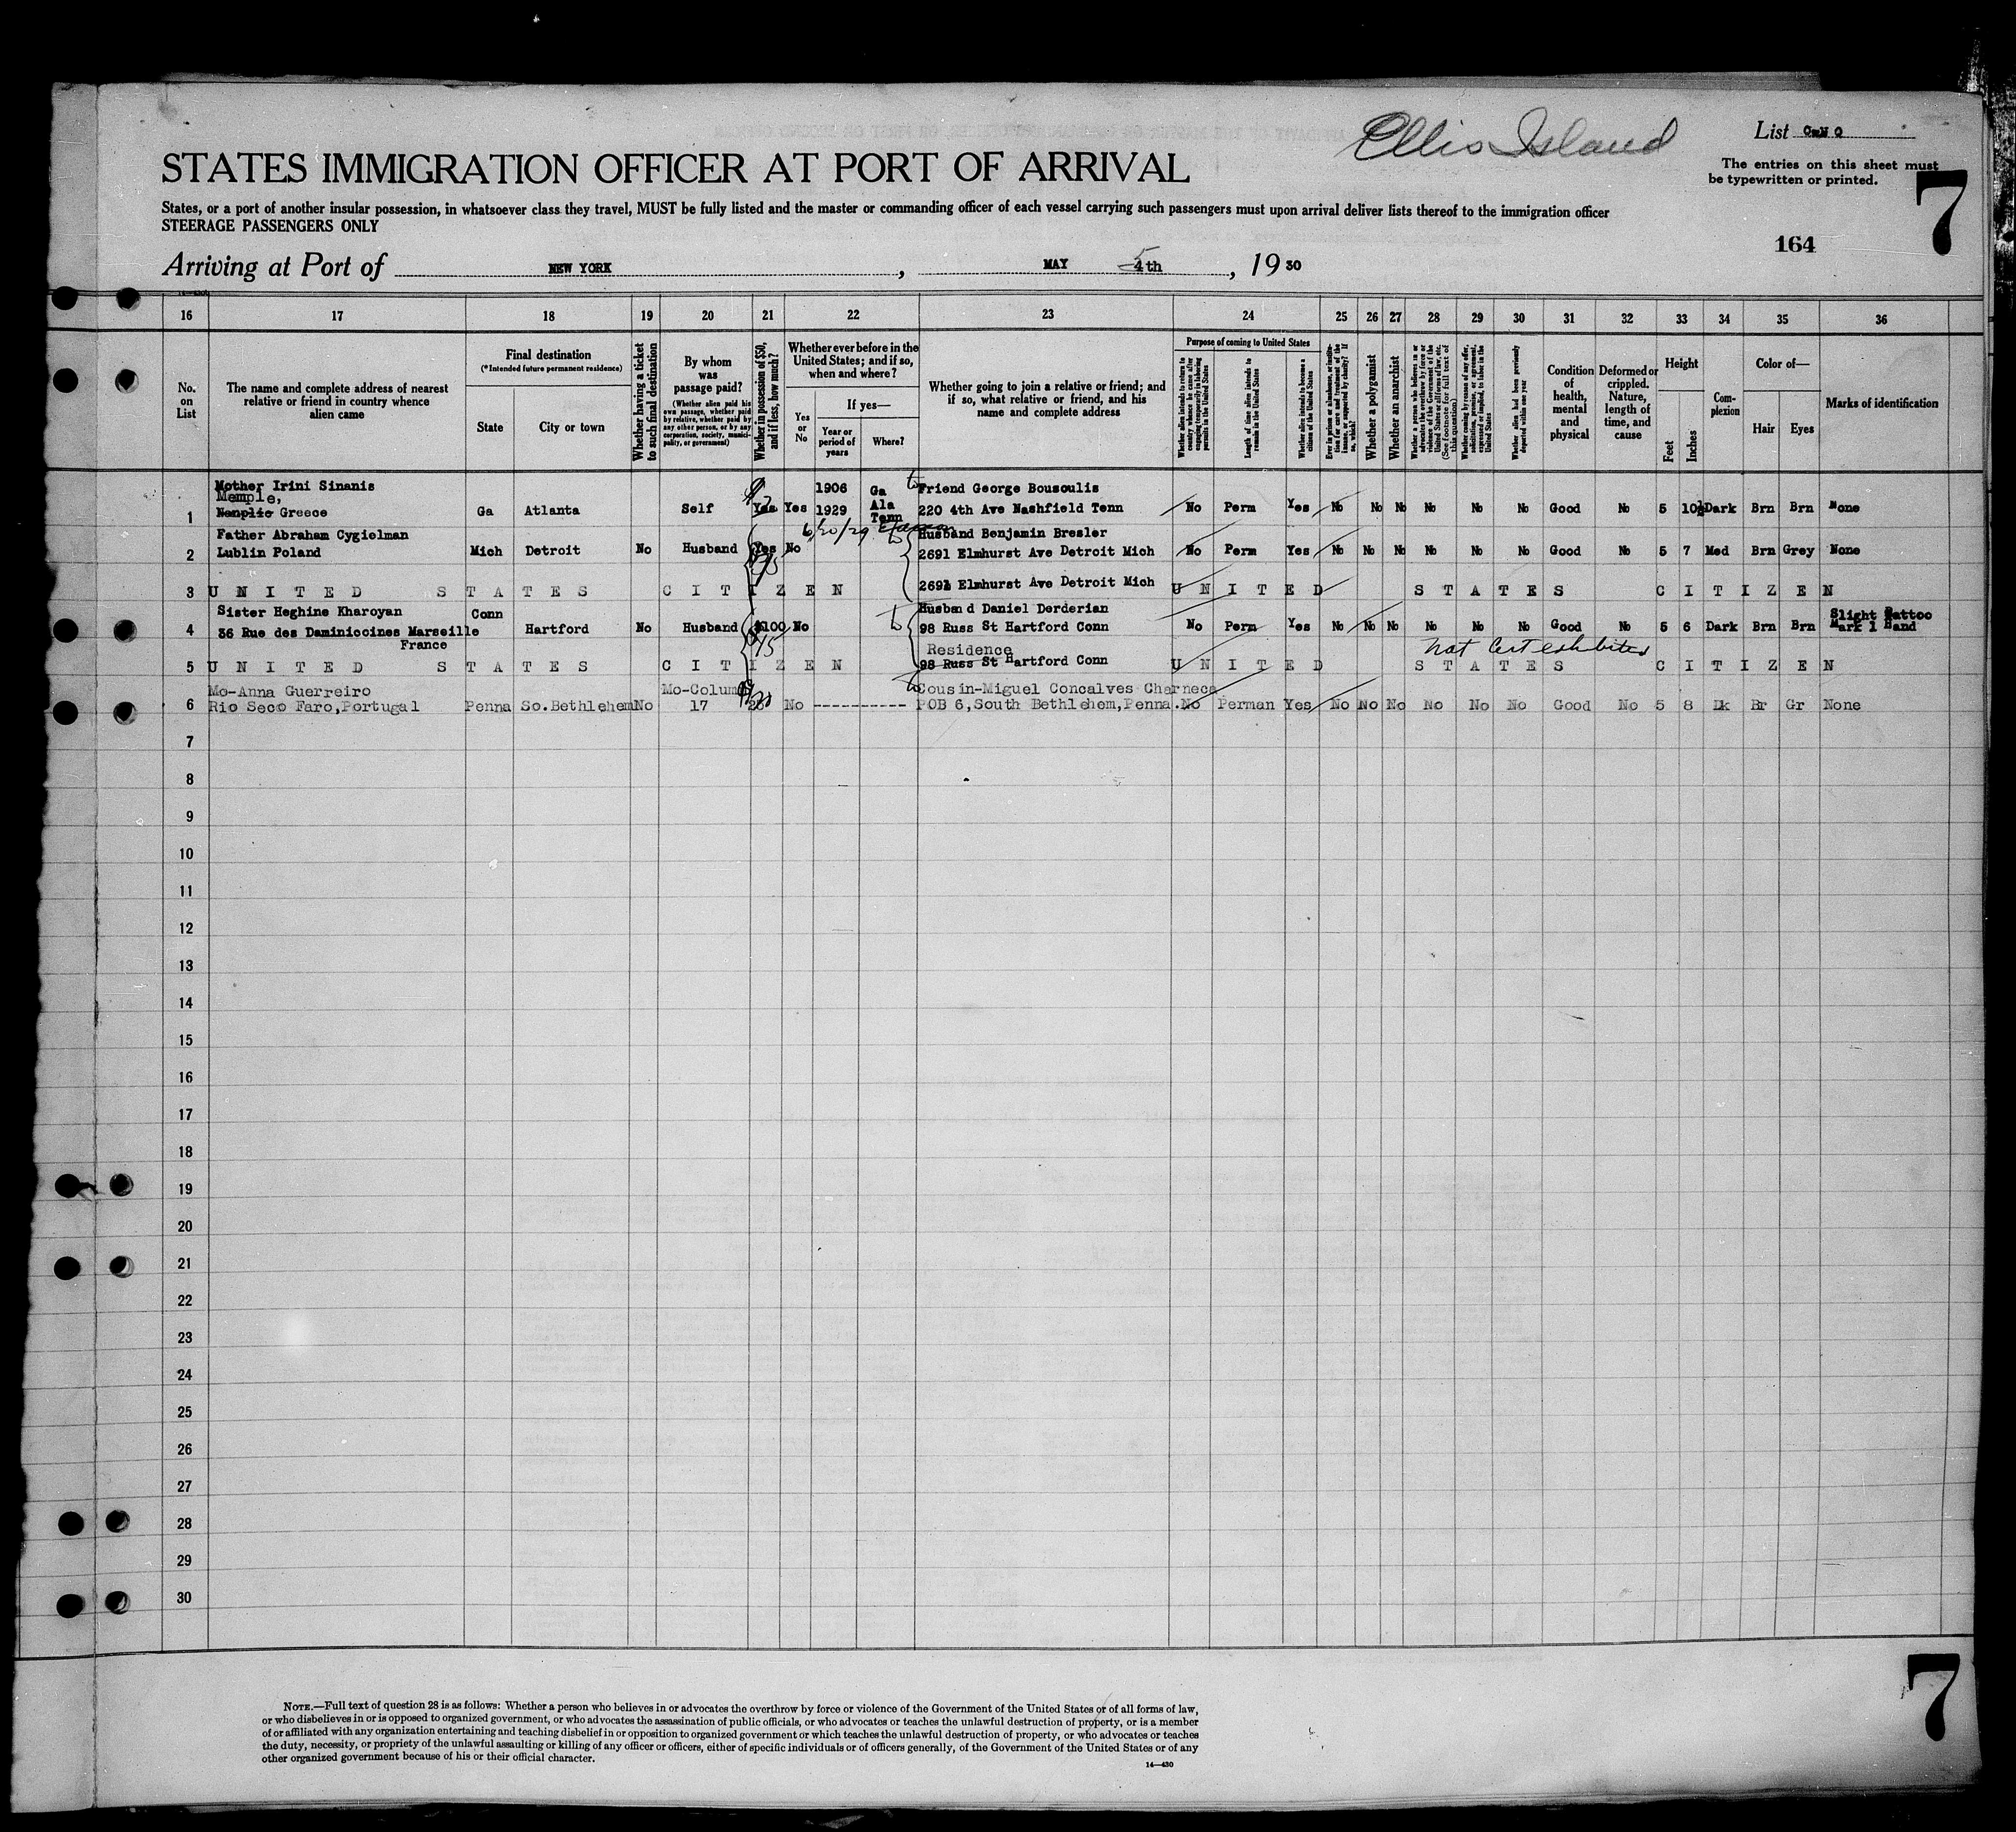 Ellis Island
List
The entries on this sheet must
be typewritten or printed.
7
STATES IMMIGRATION OFFICER AT PORT OF ARRIVAL
States, or a port of another insular possession, in whatsoever class they travel, MUST be fully listed and the master or commanding officer of each vessel carrying such passengers must upon arrival deliver lists thereof to the immigration officer
STEERAGE PASSENGERS ONLY
164
Arriving at Port of NEW YORK, MAY 5 4th, 1930
16 17 18 19 20 21 22 23 24 25 26 27 28 29 30 31 32 33 34 35 36
No. on List
The name and complete address of nearest relative or friend in country whence alien came
Final destination
(*Intended future permanent residence)
State
City or town
Whether having a ticket to such final destination
By whom was passage paid?
(Whether alien paid his own passage, whether paid by relative, whether paid by any other person, or by any corporation, society, municipality, or government)
Whether in possession of $50, and if less, how much?
Whether ever before in the United States; and if so, when and where?
Yes or No
If yes—
Year or period of years
Where?
Whether going to join a relative or friend; and if so, what relative or friend, and his name and complete address
Purpose of coming to United States
Whether alien intends to return to country whence he came after engaging temporarily in laboring pursuits in the United States
Length of time alien intends to remain in the United States
Whether alien intends to become a citizen of the United States
Ever in prison or almshouse, or institution for care and treatment of the insane, or supported by charity? If so, which?
Whether a polygamist
Whether an anarchist
Whether a person who believes in or advocates the overthrow by force or violence of the Government of the United States or all forms of law, etc. (See footnote for full text of this question)
Whether coming by reason of any offer, solicitation, promise, or agreement, expressed or implied, to labor in the United States
Whether alien had been previously deported within one year
Condition of health, mental and physical
Deformed or crippled. Nature, length of time, and cause
Height
Feet
Inches
Complexion
Color of—
Hair
Eyes
Marks of identification
Mother Irini Sinanis 1906 Ga to Friend George Bousoulis
Memple, Ala
1 Nanplio Greece Ga Atlanta Self Yes Yes 1929 Tenn 220 4th Ave Nashfield Tenn No Perm Yes No No No No No No Good No 5 10½ Dark Brn Brn None
Father Abraham Cygielman 6/20/29 to Husband Benjamin Bresler
2 Lublin Poland Mich Detroit No Husband Yes No 2691 Elmhurst Ave Detroit Mich No Perm Yes No No No No No No Good No 5 7 Med Brn Grey None
3 UNITED STATES CITIZEN 2691 Elmhurst Ave Detroit Mich UNITED STATES CITIZEN
Sister Heghine Kharoyan Conn to Husband Daniel Derderian Slight Tattoo
4 36 Rue des Daminicoines Marseille Hartford No Husband $100 No 98 Russ St Hartford Conn No Perm Yes No No No No No No Good No 5 6 Dark Brn Brn Mark l Hand
France 15 Residence Nat Cert exhibited
5 UNITED STATES CITIZEN 98 Russ St Hartford Conn UNITED STATES CITIZEN
Mo-Anna Guerreiro Mo-Column to Cousin-Miguel Concalves Charneca
6 Rio Seco Faro, Portugal Penna So.Bethlehem No 17 No ----------- POB 6, South Bethlehem, Penna. No Perman Yes No No No No No No Good No 5 8 Dk Br Gr None
7
8
9
10
11
12
13
14
15
16
17
18
19
20
21
22
23
24
25
26
27
28
29
30
NOTE.—Full text of question 28 is as follows: Whether a person who believes in or advocates the overthrow by force or violence of the Government of the United States or of all forms of law,
or who disbelieves in or is opposed to organized government, or who advocates the assassination of public officials, or who advocates or teaches the unlawful destruction of property, or is a member
of or affiliated with any organization entertaining and teaching disbelief in or opposition to organized government or which teaches the unlawful destruction of property, or who advocates or teaches
the duty, necessity, or propriety of the unlawful assaulting or killing of any officer or officers, either of specific individuals or of officers generally, of the Government of the United States or of any
other organized government because of his or their official character.
14—430
7